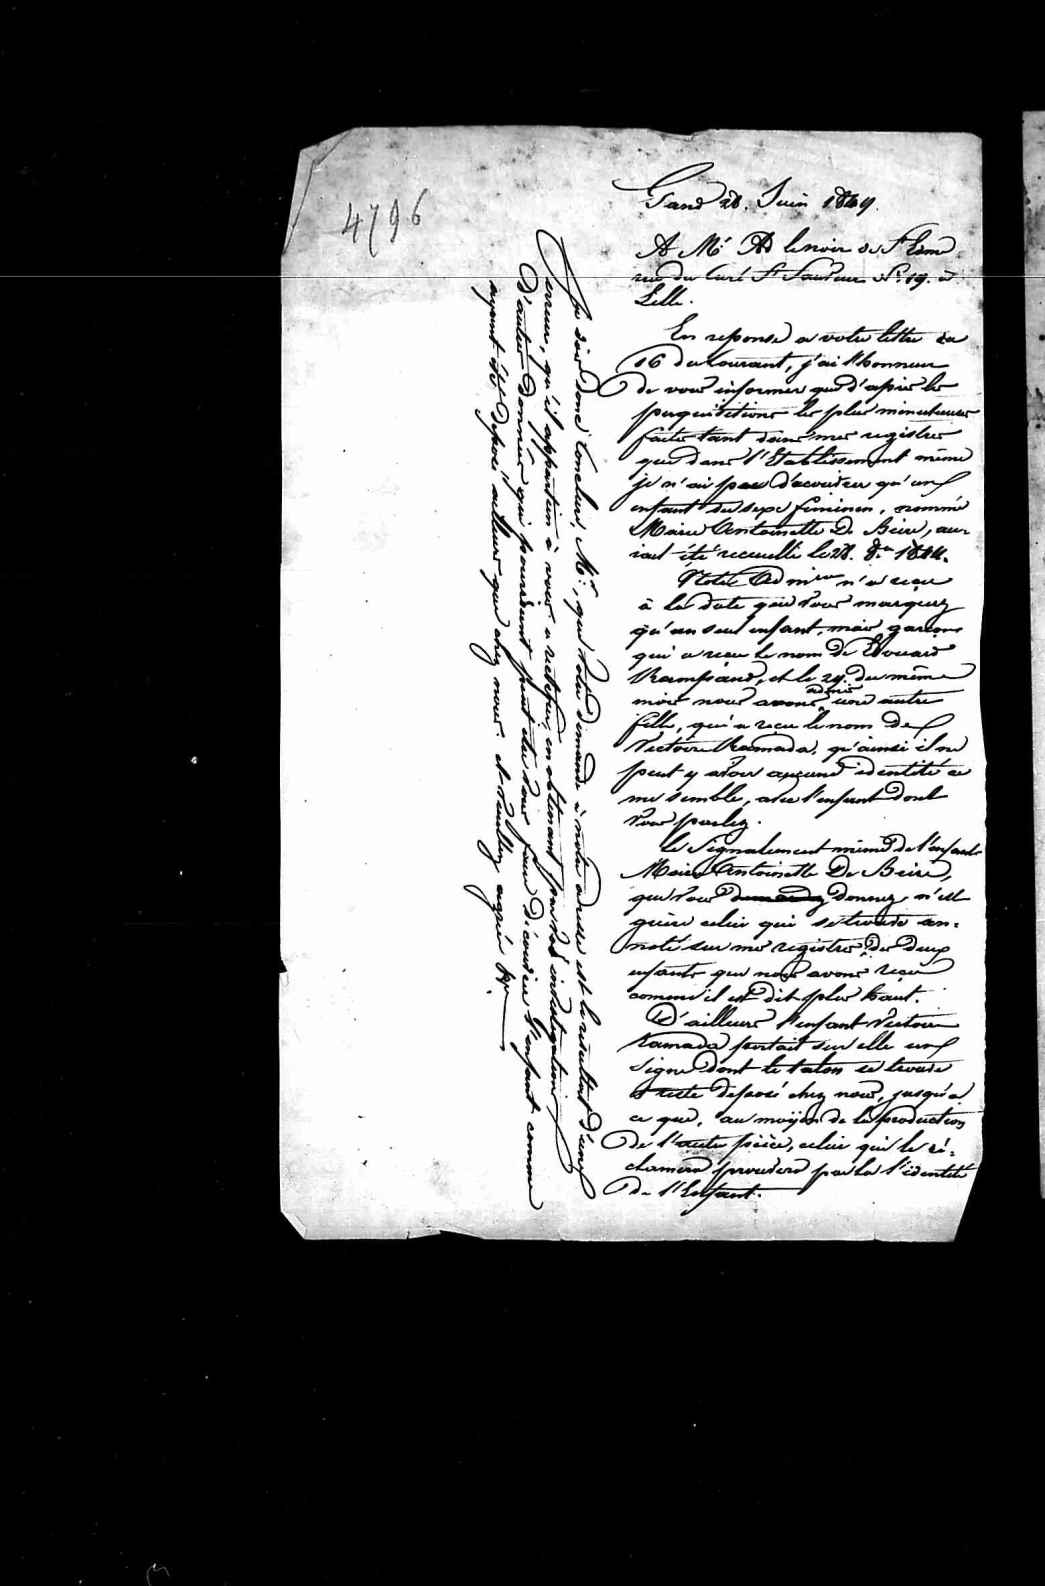 4796
Gand 28. Juin 1849.
A Mr. Ad lenoir de St
rue du Curé St Sauveur No. 19. à
Lille.
En reponse a votre lettre du
16 du Courant, j'ai l'honneur
de vous informer que d'après les
perquisitions les plus minutieuses
faites tant dans mes registres
que dans l'Etablissement même
je n'ai pas découvert qu'un
enfant du sexe féminin, nommé
Marie Antoinette De Beire, au-
rait été recueilli le 28. 8re 1844.
Notre Admion n'a reçu
à la date que vous marquez
qu'un seul enfant, mais garçon
qui a reçu le nom de Edouard
et le 29. du même
mois nous avons admis une autre
fille, qui a reçu le nom de
Victoire Ramada, qu'ainsi il ne
peut y avoir aucune identité ce
me semble, avec l'enfant dont
vous parlez.
Le Signalement même de l'enfant
Marie Antoinette De Beire,
que vous demandez donnez n'est
guère celui qui se trouve an-
noté sur mes registres, des deux
enfants que nous avons reçu
comme il est dit plus haut.
D'ailleurs l'enfant Victoire
Ramada portait sur elle un
Signe dont le talon se trouve
deposé chez nous, jusqu'à
ce que, au moyen de la production
de l'autre pièce, celui qui le ré-
clamera prouvera par la l'identité
de l'Enfant.
Je dois donc Conclure, Mr., que votre demande à notre adresse est le résultat d'une
erreur, qu'il appartien à vous a rectifier, en obtenant par vos investigations
d'autres données qui pourraient peut être vous faire découvrir l'enfant comme
ayant été deposé ailleurs que chez nous. et veuillez agréer &a.